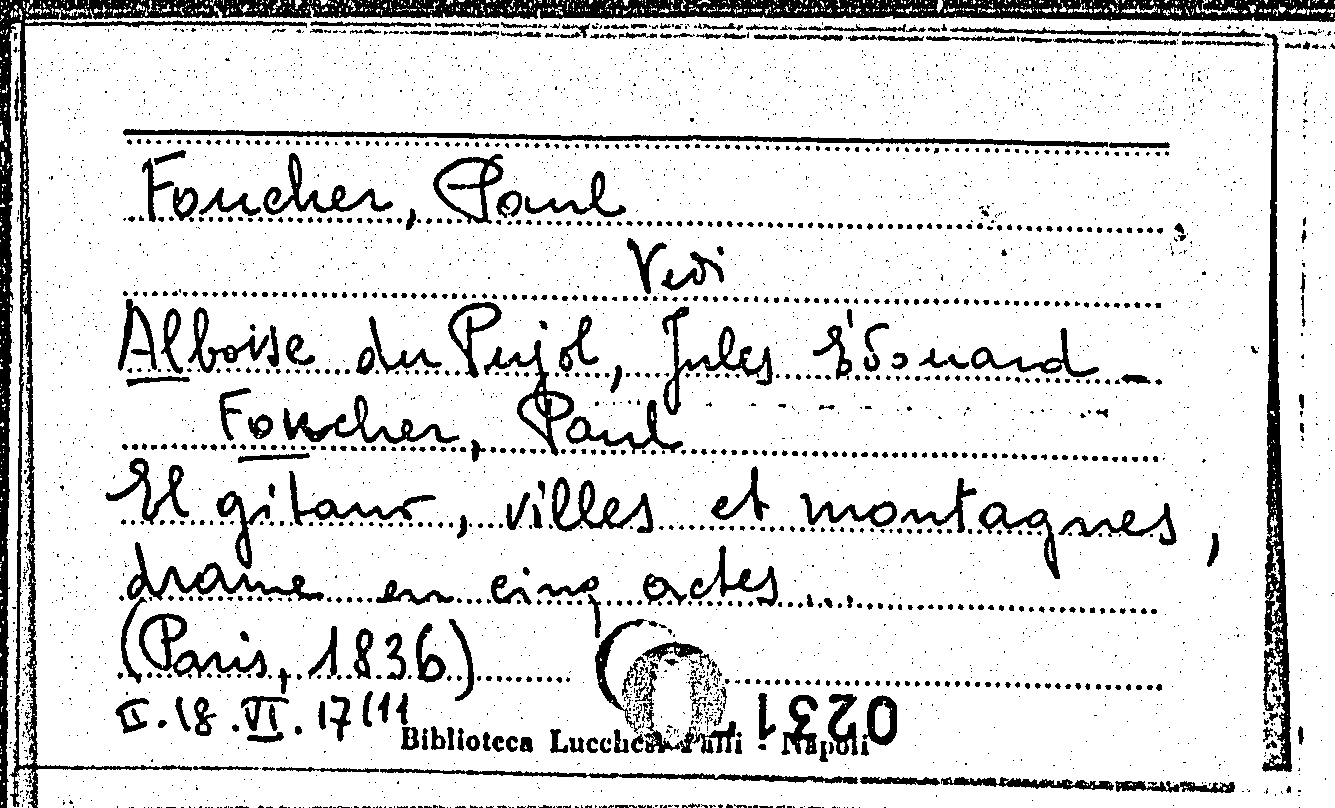 Foucher, Paul
Vedi
Alboise du Pujol, Jules Édouard -
Foucher, Paul
El gitano, villes et montagnes,
drame en cinq actes...
(Paris, 1836)
II.18.VI.17(11
Biblioteca Lucchesi Palli - Napoli
0231